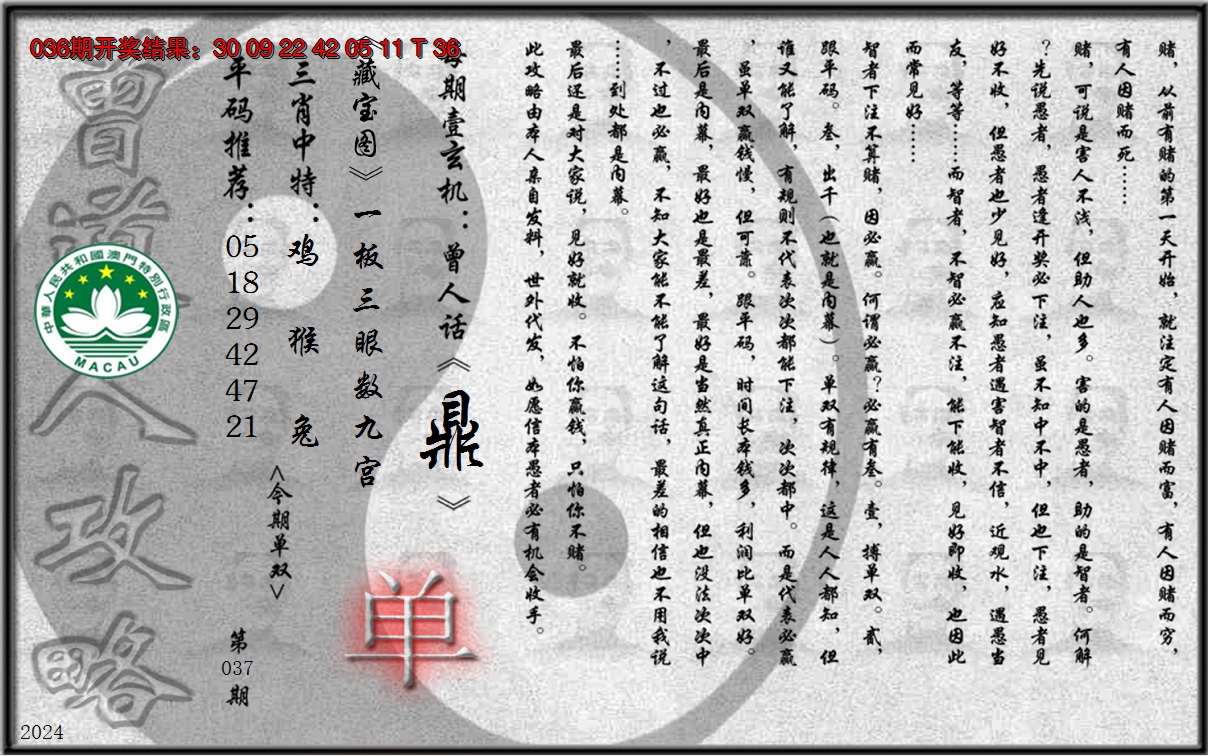 036期开奖结果：30 09 22 42 05 11 T 36
赌，从前有赌的第一天开始，就注定有人因赌而富，有人因赌而穷，
有人因赌而死……
赌，可说是害人不浅，但助人也多。害的是愚者，助的是智者。何解
？先说愚者，愚者逢开奖必下注，虽不知中不中，但也下注，愚者见
好不收，但愚者也少见好，应知愚者遇害智者不信，近观水，遇愚当
友，等等……而智者，不智必赢不注，能下能收，见好即收，也因此
而常见好……
智者下注不算赌，因必赢。何谓必赢？必赢有叁。壹，搏单双。贰，
跟平码。叁，出千（也就是内幕）。单双有规律，这是人人都知，但
谁又能了解，有规则不代表次次都能下注，次次都中。而是代表必赢
，虽单双赢钱慢，但可靠。跟平码，时间长本钱多，利润比单双好。
最后是内幕，最好也是最差，最好是当然真正内幕，但也没法次次中
，不过也必赢，不知大家能不能了解这句话，最差的相信也不用我说
……到处都是内幕。
最后还是对大家说，见好就收。不怕你赢钱，只怕你不赌。
此攻略由本人亲自发料，世外代发，如愿信本愚者必有机会收手。
每期壹玄机：曾人话《鼎》
《藏宝图》一板三眼数九宫
单
三肖中特：鸡 猴 兔
<今期单双>
平码推荐：05 18 29 42 47 21
第037期
曾道人攻略
中華人民共和國澳門特別行政區
MACAU
2024